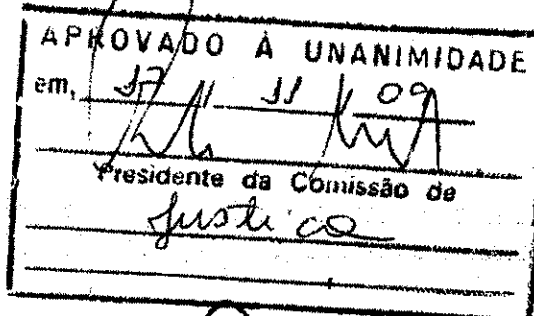 APROVADO À UNANIMIDADE
em, 17 11 09
Presidente da Comissão de
Justiça